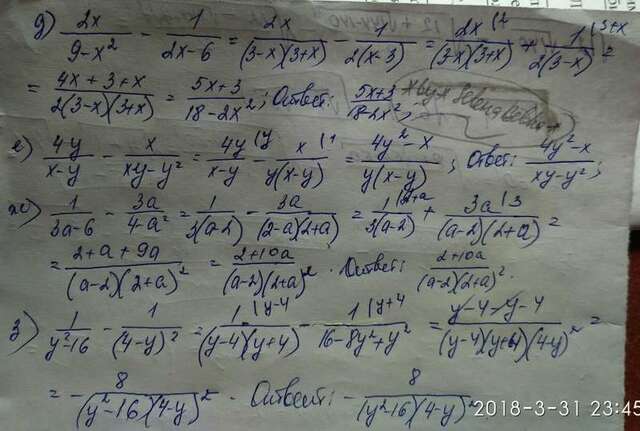 д) 2x/(9-x²) - 1/(2x-6) = 2x/((3-x)(3+x)) - 1/(2(x-3)) = 2x⁽²/((3-x)(3+x)) + 1⁽³⁺ˣ/(2(3-x)) =
= (4x+3+x)/(2(3-x)(3+x)) = (5x+3)/(18-2x²); Ответ: (5x+3)/(18-2x²);
е) 4y/(x-y) - x/(xy-y²) = 4y⁽ʸ/(x-y) - x⁽¹/(y(x-y)) = (4y²-x)/(y(x-y)); Ответ: (4y²-x)/(xy-y²);
ж) 1/(3a-6) - 3a/(4-a²) = 1/(3(a-2)) - 3a/((2-a)(2+a)) = 1⁽²⁺ᵃ/(3(a-2)) + 3a⁽³/((a-2)(2+a)) =
= (2+a+9a)/((a-2)(2+a)²) = (2+10a)/((a-2)(2+a)²). Ответ: (2+10a)/((a-2)(2+a)²).
з) 1/(y²-16) - 1/(4-y)² = 1⁽ʸ⁻⁴/((y-4)(y+4)) - 1⁽ʸ⁺⁴/(16-8y+y²) = (y-4-y-4)/((y-4)(y+4)(4-y)²) =
= - 8/((y²-16)(4-y)²). Ответ: - 8/((y²-16)(4-y)²)
2018-3-31 23:45